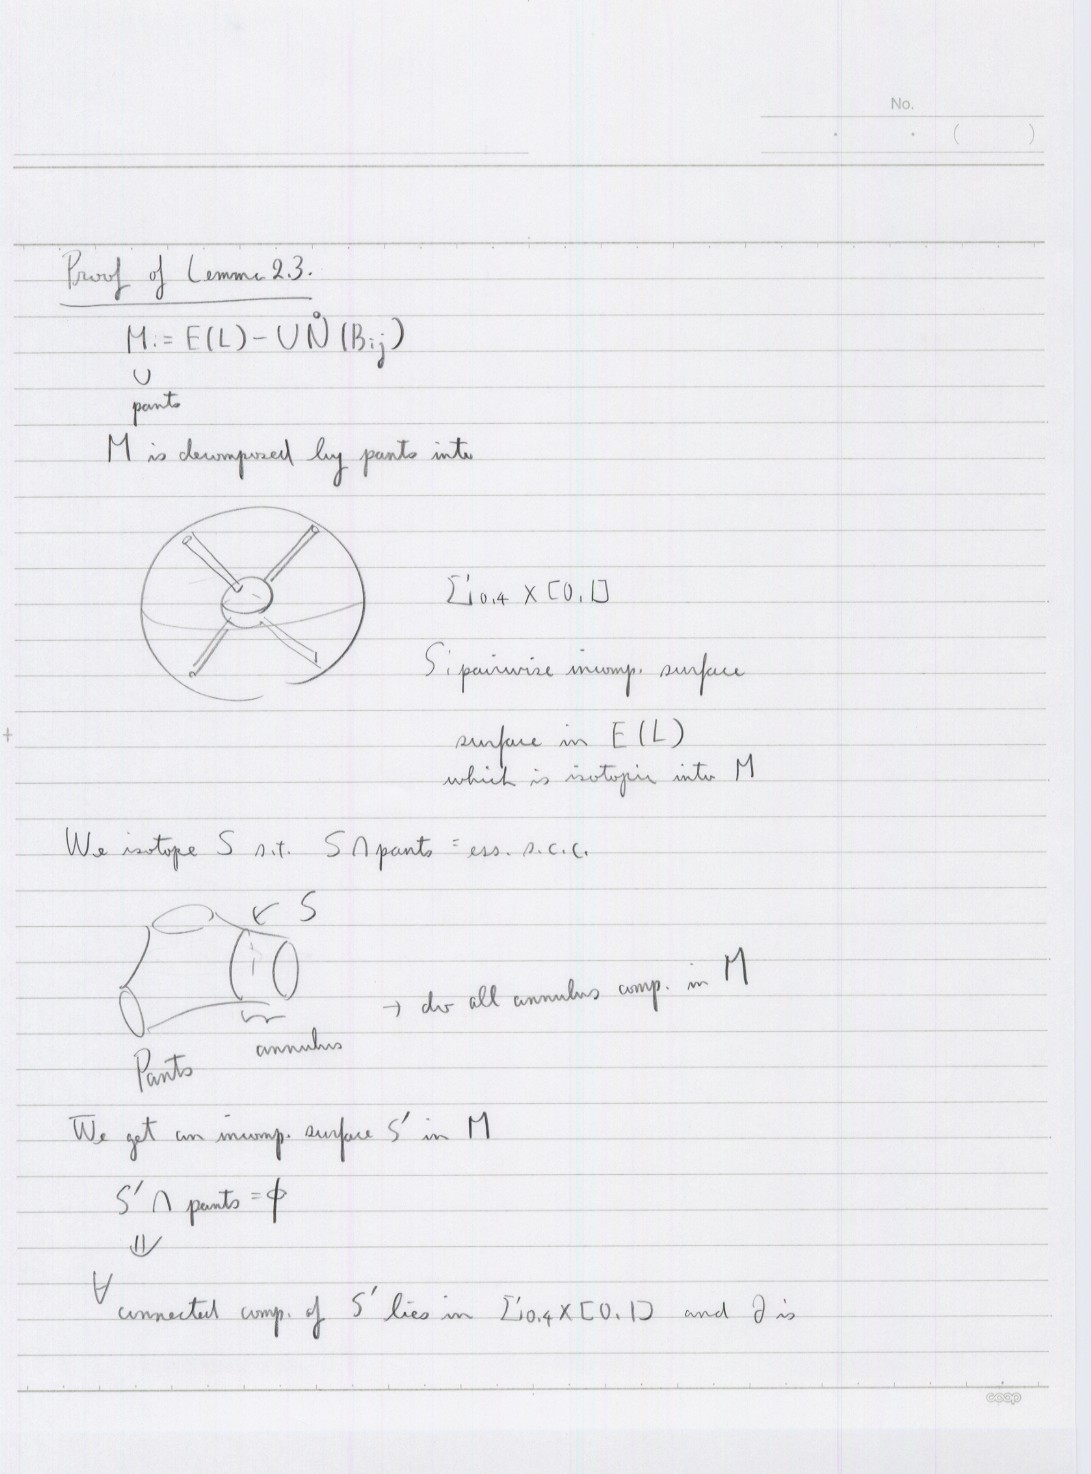 No.
( )
Proof of Lemma 2.3.
M := E(L) - ∪N̊(Bij)
∪
pants
M is decomposed by pants into
Σ0,4 × [0,1]
S : pairwise incomp. surface
surface in E(L)
which is isotopic into M
We isotope S s.t. S ∩ pants = ess. s.c.c.
S
→ do all annulus comp. in M
annulus
Pants
We get an incomp. surface S' in M
S' ∩ pants = ϕ
⇓
∀ connected comp. of S' lies in Σ0,4 × [0,1] and ∂ is
coop